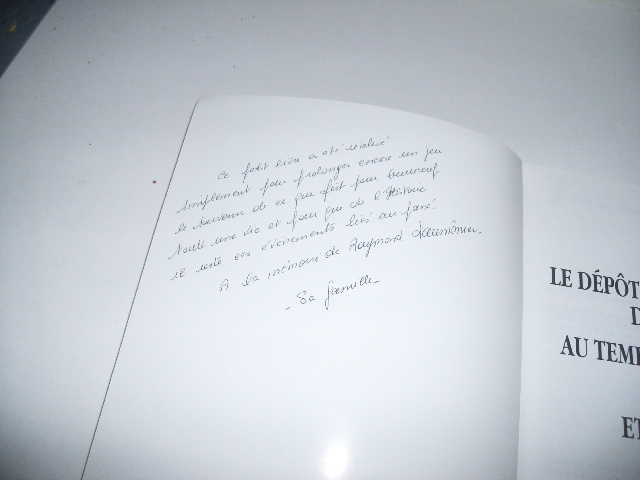 Ce petit livre a été réalisé
simplement pour prolonger encore un peu
le souvenir de ce que fut pour beaucoup
toute une vie et pour que de l'Histoire
il reste ces événements liés au passé.
A la mémoire de Raymond
- Sa famille -
LE DÉPÔT
D
AU TEMP
ET